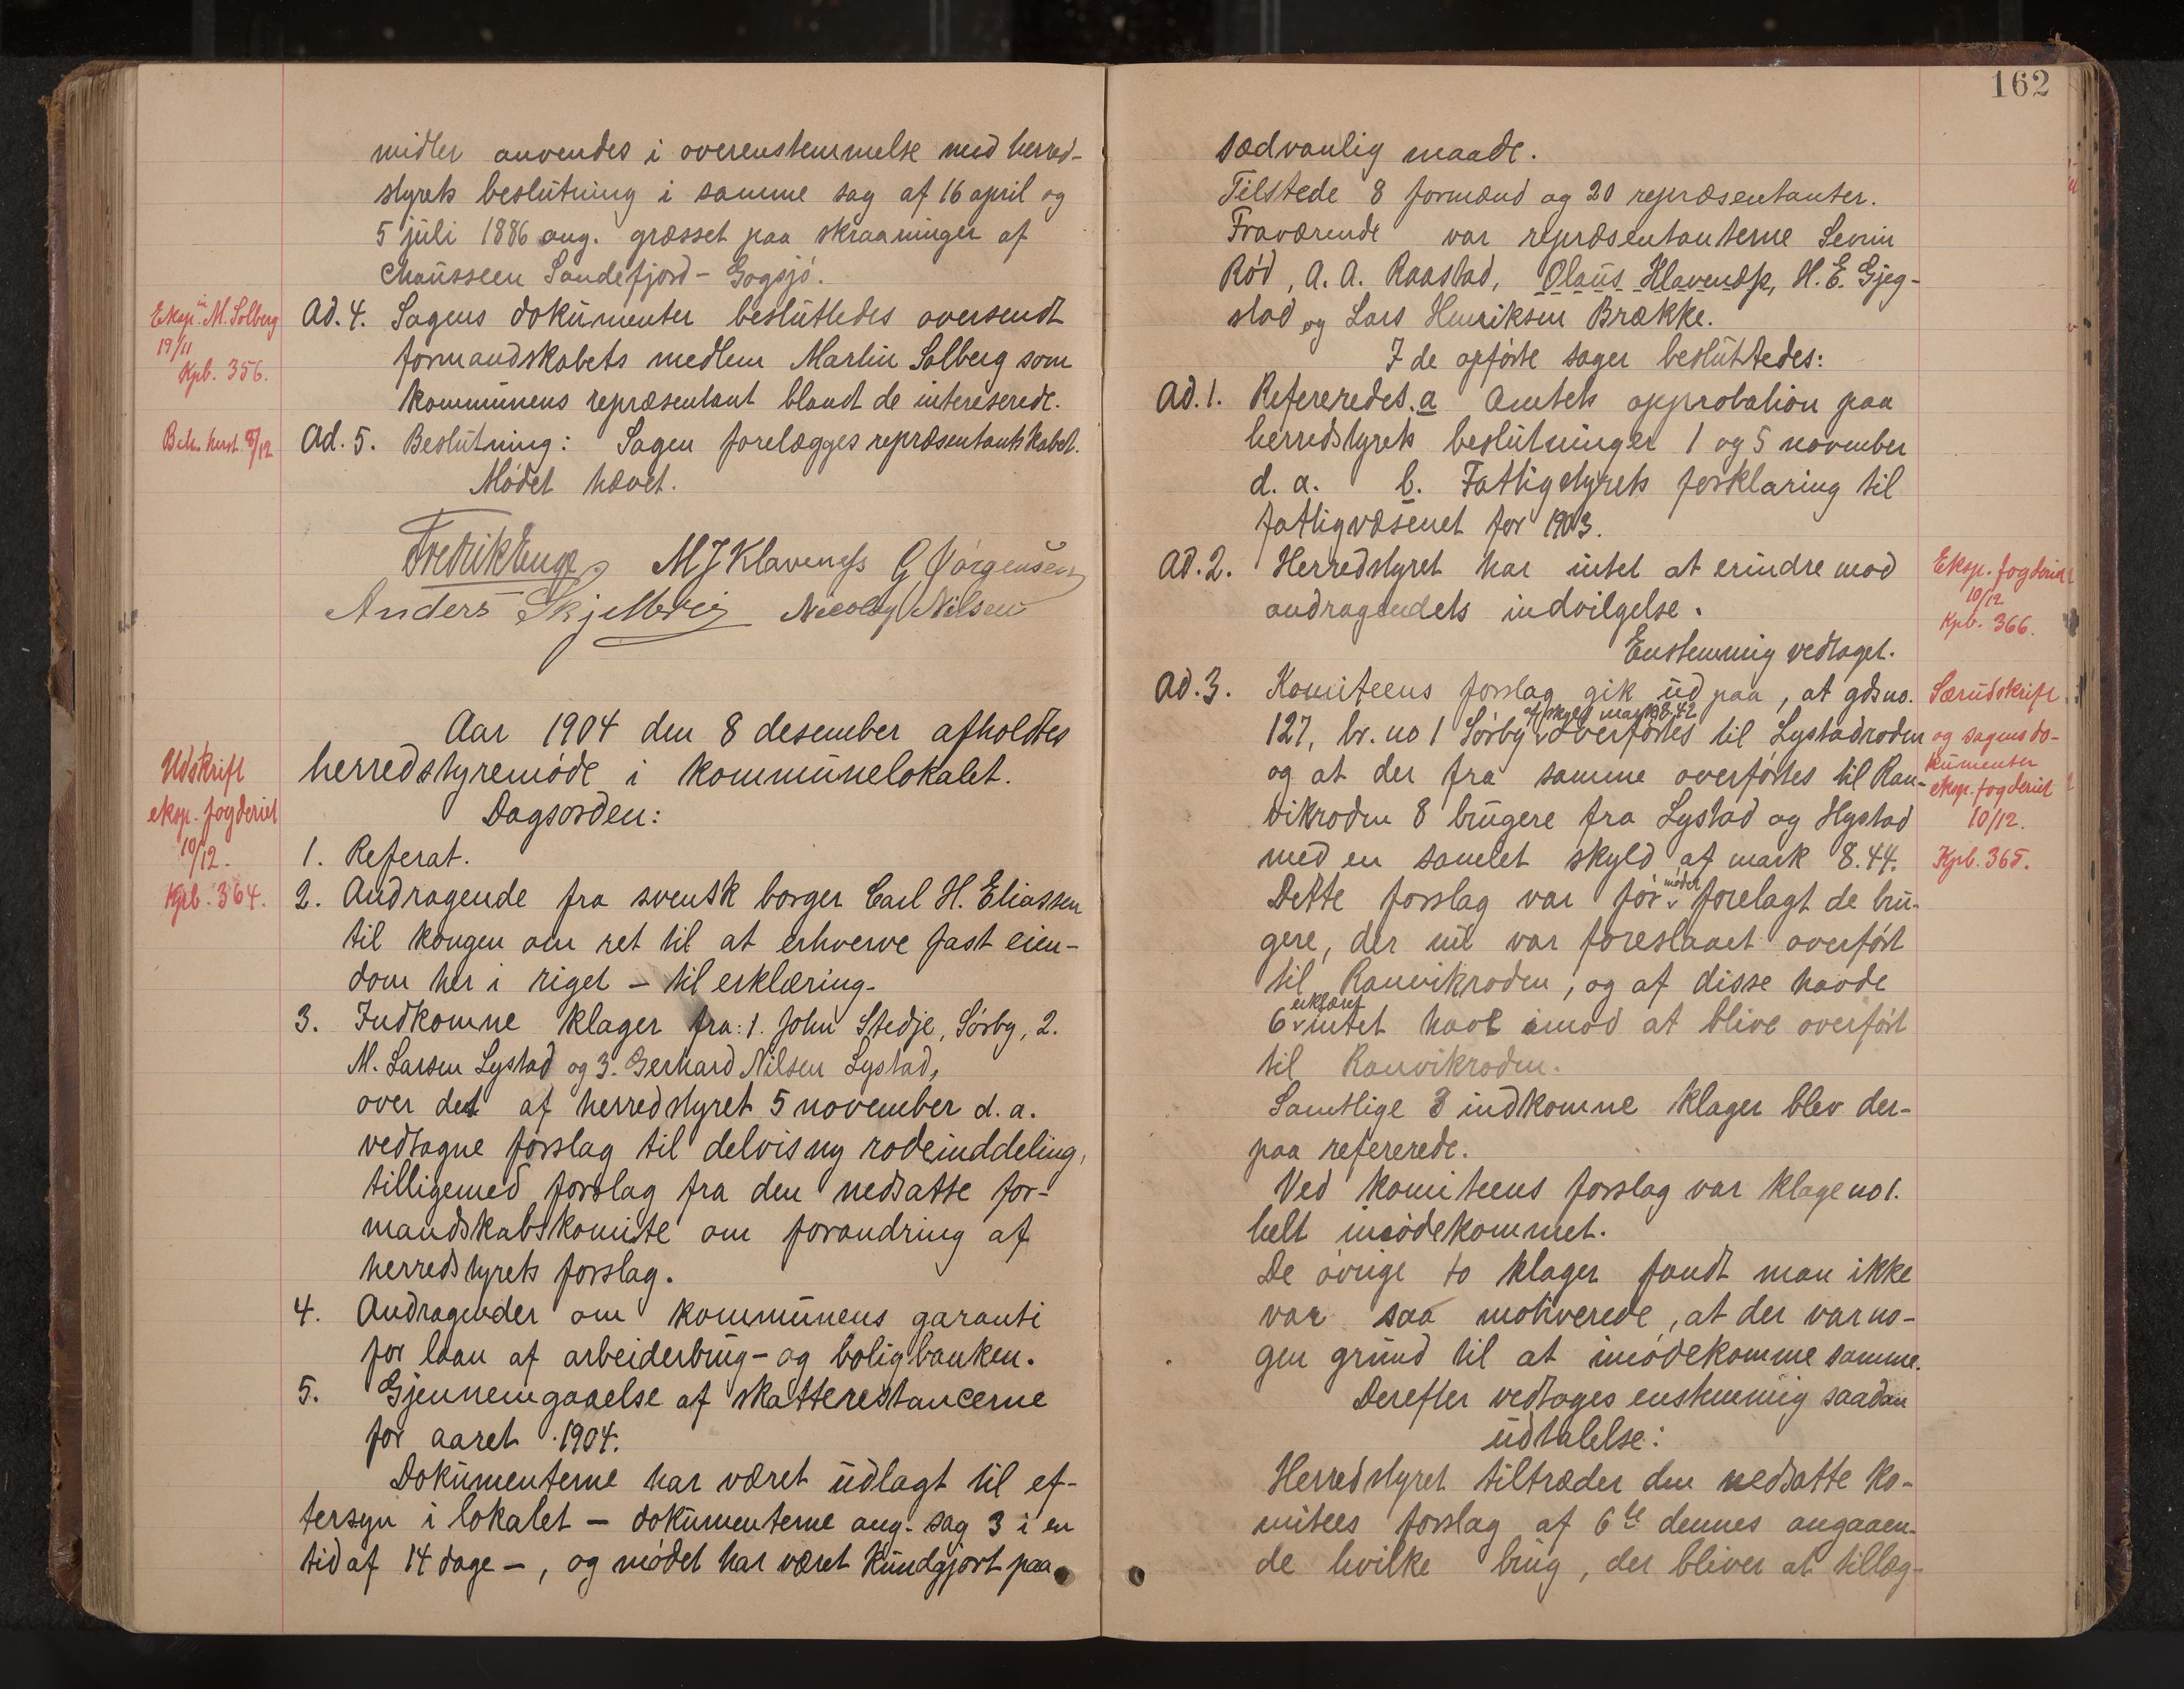 midler anvendes i overenstemmelse med herred-
styrets beslutning i samme sag af 16 april og
5 juli 1886 ang. græsset paa skraaninger af
chausseen Sandefjord - Gogsjö.
Eksp. M. Solberg
19/11
Kpb. 356.
Ad. 4. Sagens dokumenter besluttedes oversendt
formandskabets medlem Martin Solberg som
kommunens repræsentant blandt de intereserede.
8/12
Ad. 5. Beslutning: Sagen forelægges repræsentantskabet.
Mödet hævet.
Fredrik Enge M J Klaveness G Jørgensen
Anders Skjelbreij Nicolay Nilsen
Aar 1904 den 8 desember afholdtes
herredstyremöde i kommunelokalet.
Udskrift
eksp. fogderiet
10/12.
Kpb. 364.
Dagsorden:
1. Referat.
2. Andragende fra svensk borger Carl H. Eliassen
til kongen om ret til at erhverve fast eien-
dom her i riget – til erklæring.
3. Indkomne klager fra: 1. John Stedje, Sörby, 2.
M. Larsen Lystad og 3. Gerhard Nilsen Lystad,
over det af herredstyret 5 november d. a.
vedtagne forslag til delvis ny rodeinddeling,
tilligemed forslag fra den nedsatte for-
mandskabskomite om forandring af
herredstyrets forslag.
4. Andragender om kommunens garanti
for laan af arbeiderbrug- og boligbanken.
5. Gjennemgaaelse af skatterestancerne
for aaret 1904.
Dokumenterne har været udlagt til ef-
tersyn i lokalet – dokumenterne ang. sag 3 i en
tid af 14 dage –, og mödet har været kundgjort paa
162
sædvanlig maade.
Tilstede 8 formænd og 20 repræsentanter.
Fraværende var repræsentanterne Sevrin
Röd, A. A. Raastad, Olaus Klavenæss, H. E. Gjeg-
stad og Lars Henriksen Brække.
I de opförte sager besluttedes:
Ad. 1. Refereredes. a Amtets approbation paa
herredstyrets beslutninger 1 og 5 november
d. a. b. Fattigstyrets forklaring til
fattigvæsenet for 1903.
Ad. 2. Herredstyret har intet at erindre mod
andragendets indvilgelse.
Eksp. fogderiet
10/12
Kpb. 366.
Enstemmig vedtaget.
Ad. 3. Komiteens forslag gik ud paa, at gds no.
af skyld mark 8.42
127, br. no 1 Sörby overförtes til Lystadroden
og at der fra samme overförtes til Ran-
vikroden 8 brugere fra Lystad og Hystad
med en samlet skyld af mark 8.44.
Særudskrift
og sagens do-
kumenter
eksp. fogderiet
10/12.
Kpb. 365.
mödet
Dette forslag var för forelagt de bru-
gere, der nu var foreslaaet overfört
til Ranvikroden, og af disse havde
erklæret
6 intet have imod at blive overfört
til Ranvikroden.
Samtlige 3 indkomne klager blev der-
paa refererede.
Ved komiteens forslag var klage no 1.
helt imödekommet.
De övrige to klager fandt man ikke
var saa motiverede, at der var no-
gen grund til at imödekomme samme.
Derefter vedtoges enstemmig saadan
udtalelse:
Herredstyret tiltræder den nedsatte ko-
mitees forslag af 6te dennes angaaen-
de hvilke brug, der bliver at tillæg-